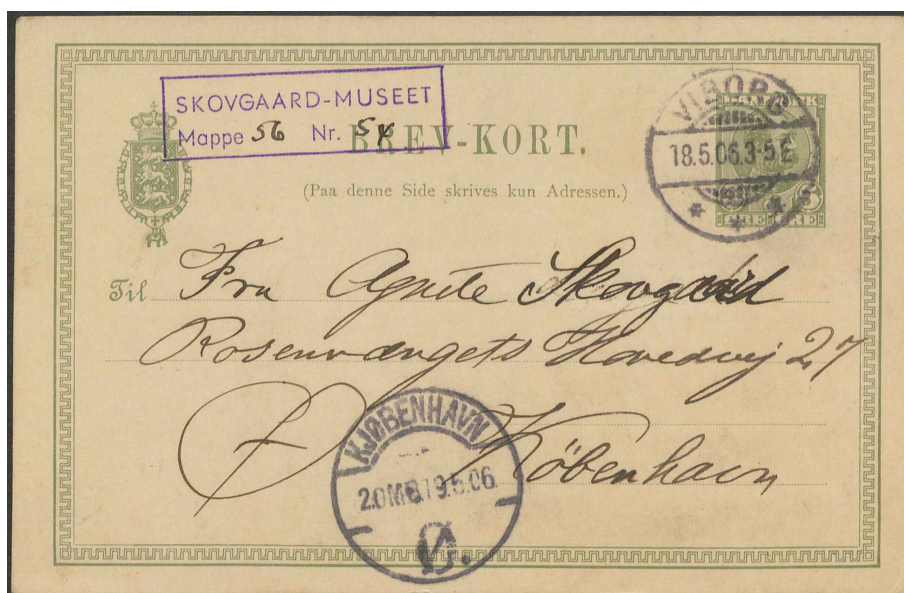 SKOVGAARD-MUSEET
Mappe 56 Nr. 54
BREV-KORT.
(Paa denne Side skrives kun Adressen.)
VIBORG
18.5.06.3-5E
Til Fru Agnete Skovgaard
Rosenvængets Hovedvej 27
Ø København
KJØBENHAVN
2.OMB.19.5.06.
Ø.